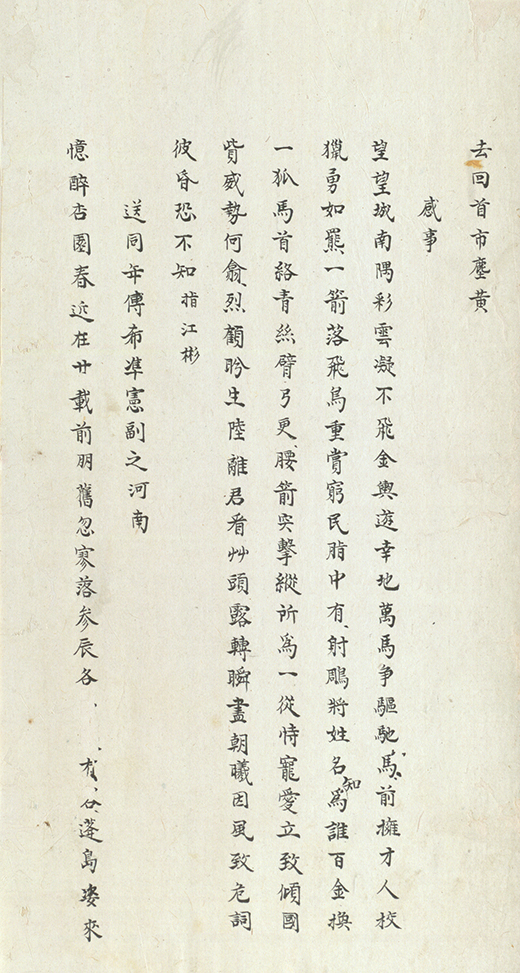 去回首市塵黄
感事
望望城南隅彩雲凝不飛金輿遊幸地萬馬争驅馳馬前擁才人校
獵勇如羆一箭落飛鳥重賞窮民脂中有射鵰將姓名知為誰百金換
一狐馬首絡青絲臂弓更腰箭突擊縱所為一從恃寵愛立致傾國
貲威勢何翕烈顧盼生陸離君看艸頭露轉瞬盡朝曦因風致危詞
彼昏恐不知指江彬
送同年傅希準憲副之河南
憶醉杏園春近在廿載前朋舊忽寥落参辰各 蓬島姿來